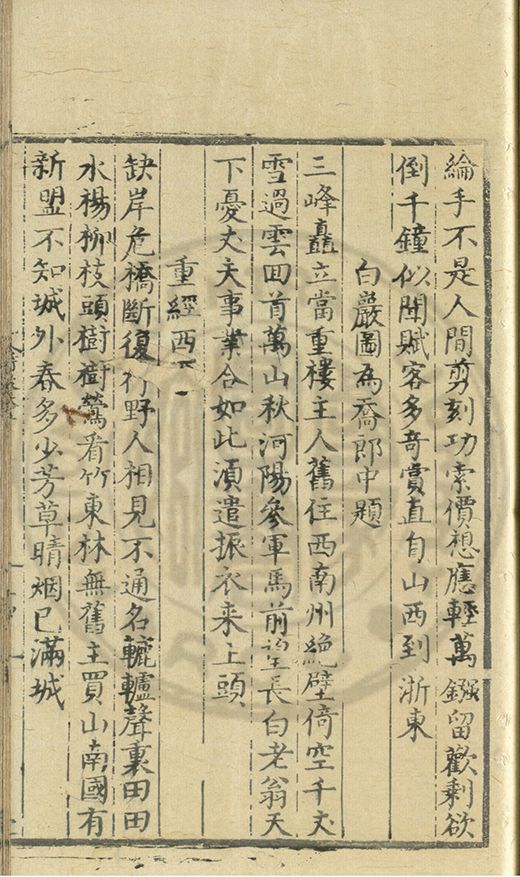 綸手不是人間剪刻功索價想應輕萬鏹留歡剩欲
倒千鐘似聞賦客多奇賞直自山西到浙東
白巖圖為喬郎中題
三峰矗立當重樓主人舊住西南州絶壁倚空千丈
雪過雲回首萬山秋河陽參軍馬前望長白老翁天
下憂丈夫事業合如此須遣振衣来上頭
重經西
缺岸危橋斷復行野人相見不通名轆轤聲裏田田
水楊栁枝頭樹樹鶯看竹東林無舊主買山南國有
新盟不知城外春多少芳草晴烟已滿城